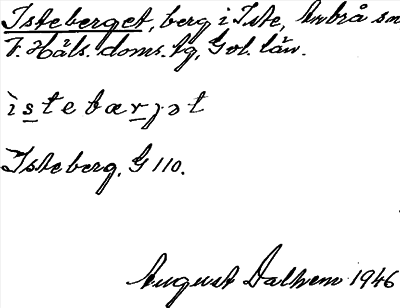 Isteberget, berg i Iste, Ambrå sn
N. Häls. doms. tg, Gvl. län.
ìstebærjət
Isteberg, G 110.
August Dalhem 1946